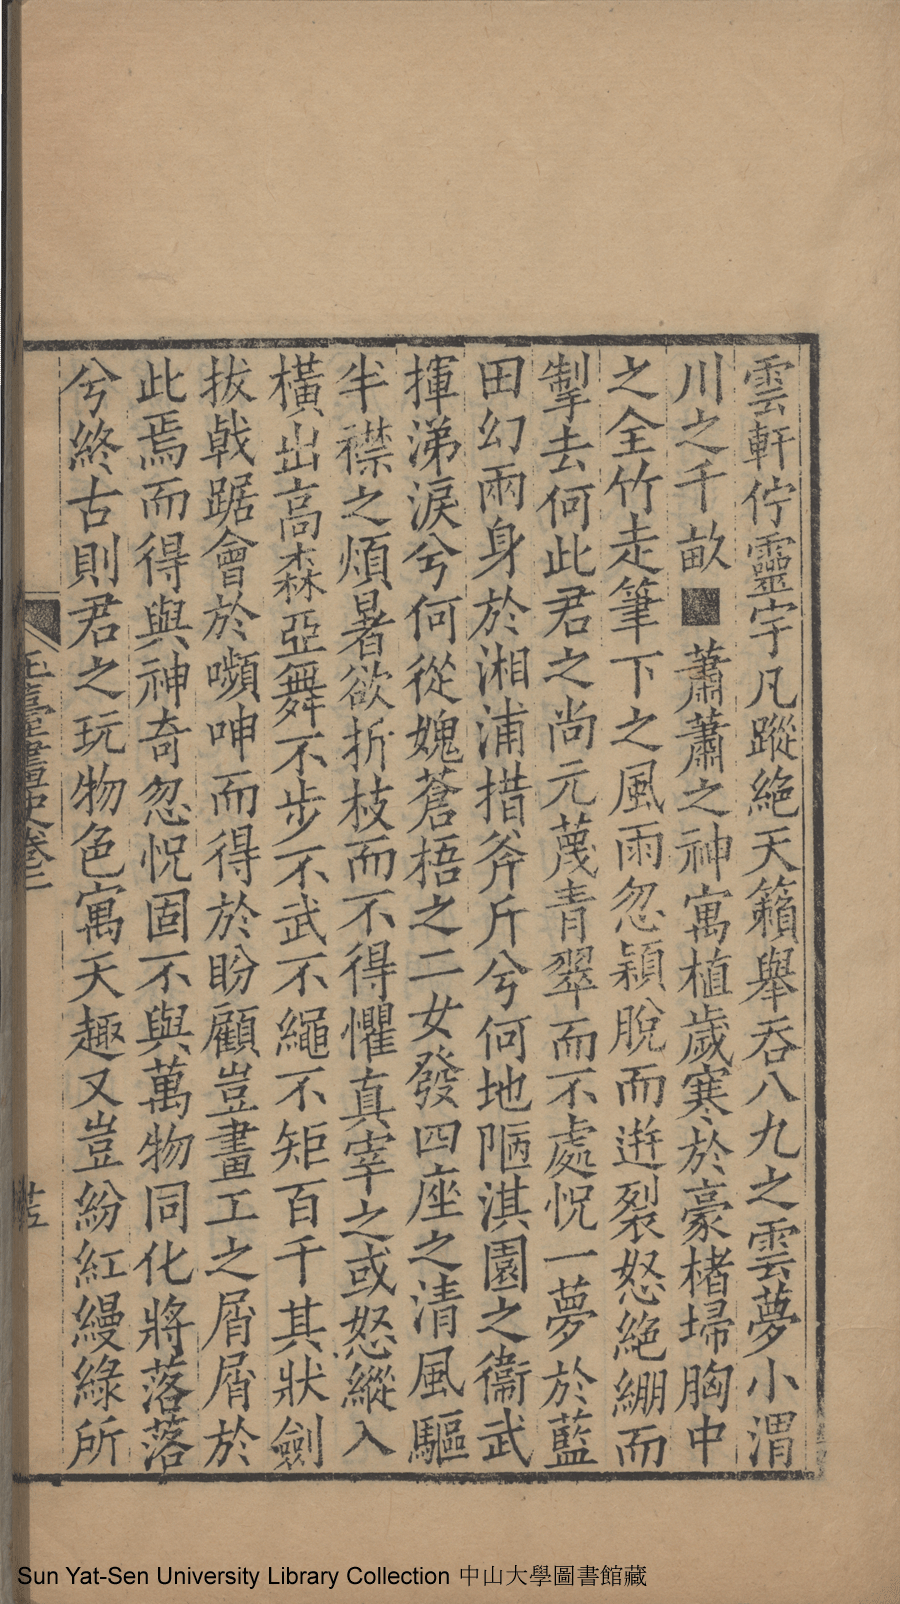 雲軒佇靈宇凡蹤絶天籟舉吞八九之雲夢小渭
川之千畝■蕭蕭之神寓植歲寒於豪楮埽胸中
之全竹走筆下之風雨忽穎脫而逬裂怒絶綳而
掣去何此君之尚元蔑青翠而不處怳一夢於藍
田幻兩身於湘浦措斧斤兮何地陋淇園之衞武
揮涕淚兮何從媿蒼梧之二女發四座之清風驅
半襟之煩暑欲折枝而不得懼真宰之或怒縱入
橫出高森亞舞不步不武不繩不矩百千其狀劍
拔戟踞會於嚬呻而得於盼顧豈畫工之屑屑於
此焉而得與神奇忽怳固不與萬物同化將落落
兮終古則君之玩物色寓天趣又豈紛紅縵綠所
玉臺畫史卷二
Sun Yat-Sen University Library Collection 中山大學圖書館藏